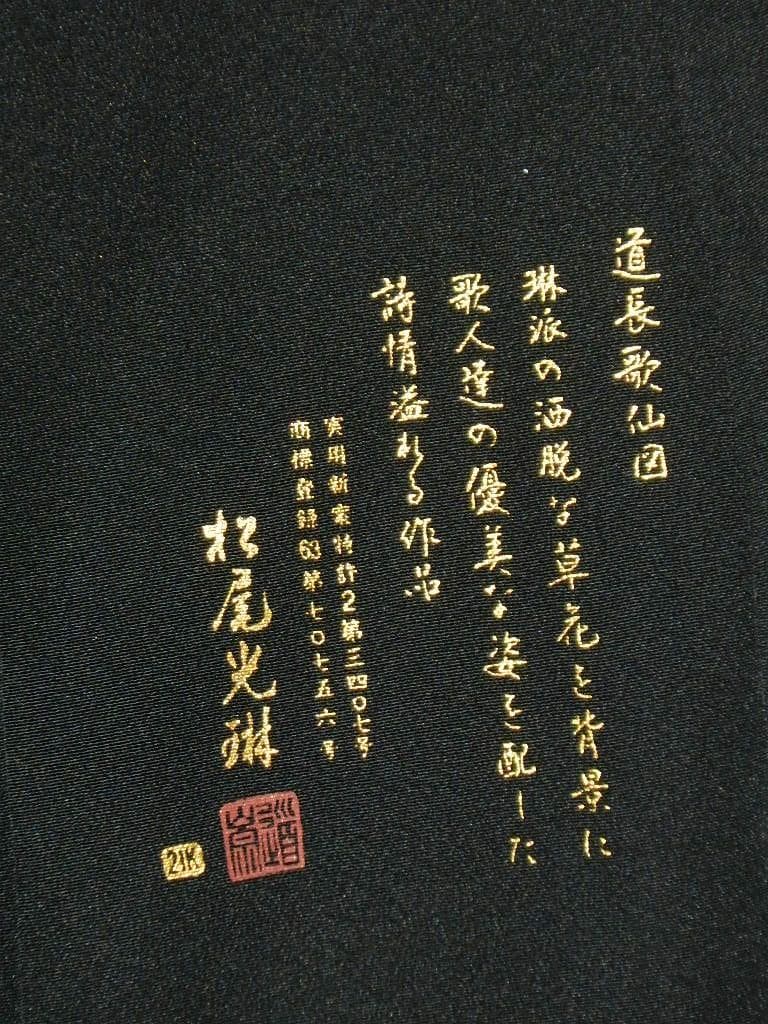 道長歌仙図
琳派の洒脱な草花を背景に
歌人達の優美な姿を配した
詩情溢れる作品
実用新案特許2第三四〇七号
商標登録63第七〇七五六号
松尾光琳
21K